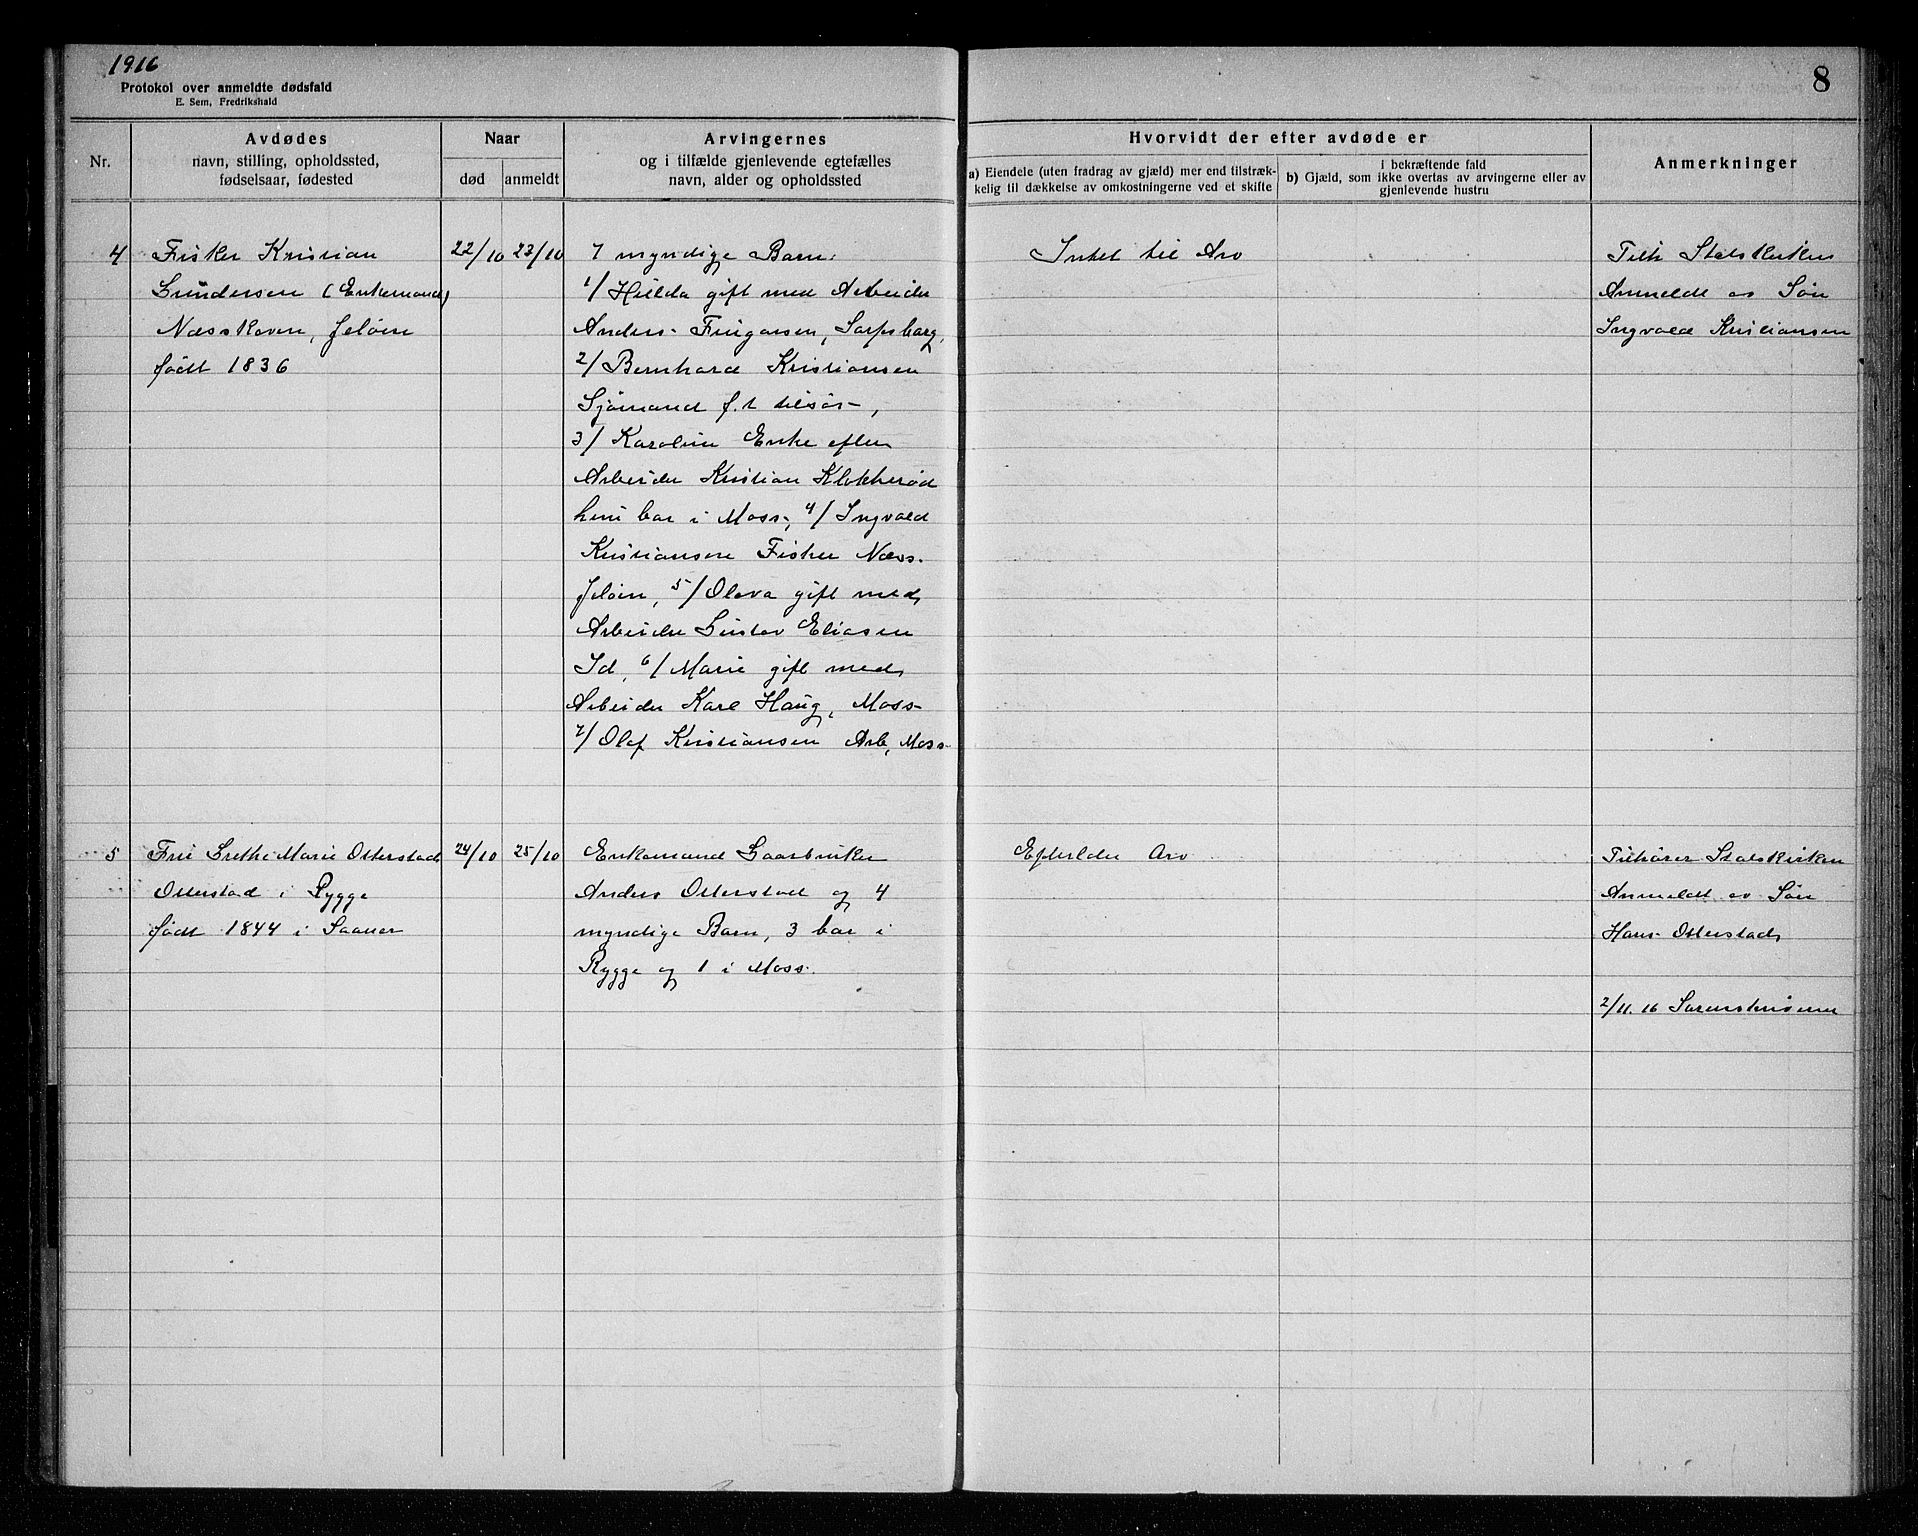 1916
8
Protokol over anmeldte dødsfald
E. Sem, Fredrikshald
Nr.
Avdødes
navn, stilling, opholdssted,
fødselsaar, fødested
Naar
død
anmeldt
Arvingernes
og i tilfælde gjenlevende egtefælles
navn, alder og opholdssted
Hvorvidt der efter avdøde er
a) Eiendele (uten fradrag av gjæld) mer end tilstræk-
kelig til dækkelse av omkostningerne ved et skifte
i bekræftende fald
b) Gjæld, som ikke overtas av arvingerne eller av
gjenlevende hustru
Anmerkninger
4
Fisker Kristian
Gundersen (Enkemand)
Næsskoven, Jeløen
født 1836
22/10
23/10
7 myndige Barn:
1/ Hulda gift med Arbeider
Anders Sarpsborg,
2/ Bernhard Kristiansen
Sjømand f.t tilsøs,
3/ Karoline Enke efter
Arbeider Kristian Klokkerød
hun bor i Moss, 4/ Ingvald
Kristiansen Fisker Næss
Jeløen, 5/ Olava gift med
Arbeider Gustav Eliasen
Id, 6/ Marie gift med
Arbeider Karl Haug, Moss
7/ Olaf Kristiansen Arb, Moss
Intet til Arv
Tilh Statskirken
Anmeldt av Søn
Ingvald Kristiansen
5
Fru Grethe Marie Otterstad
Otterstad i Rygge
født 1844 i Saaner
24/10
25/10
Enkemand Gaardbruker
Anders Otterstad og 4
myndige Barn, 3 bor i
Rygge og 1 i Moss.
Efterlder Arv
Tilhører Statskirken
Anmeldt av Søn
Hans Otterstad
2/11.16 Sorenskriveren